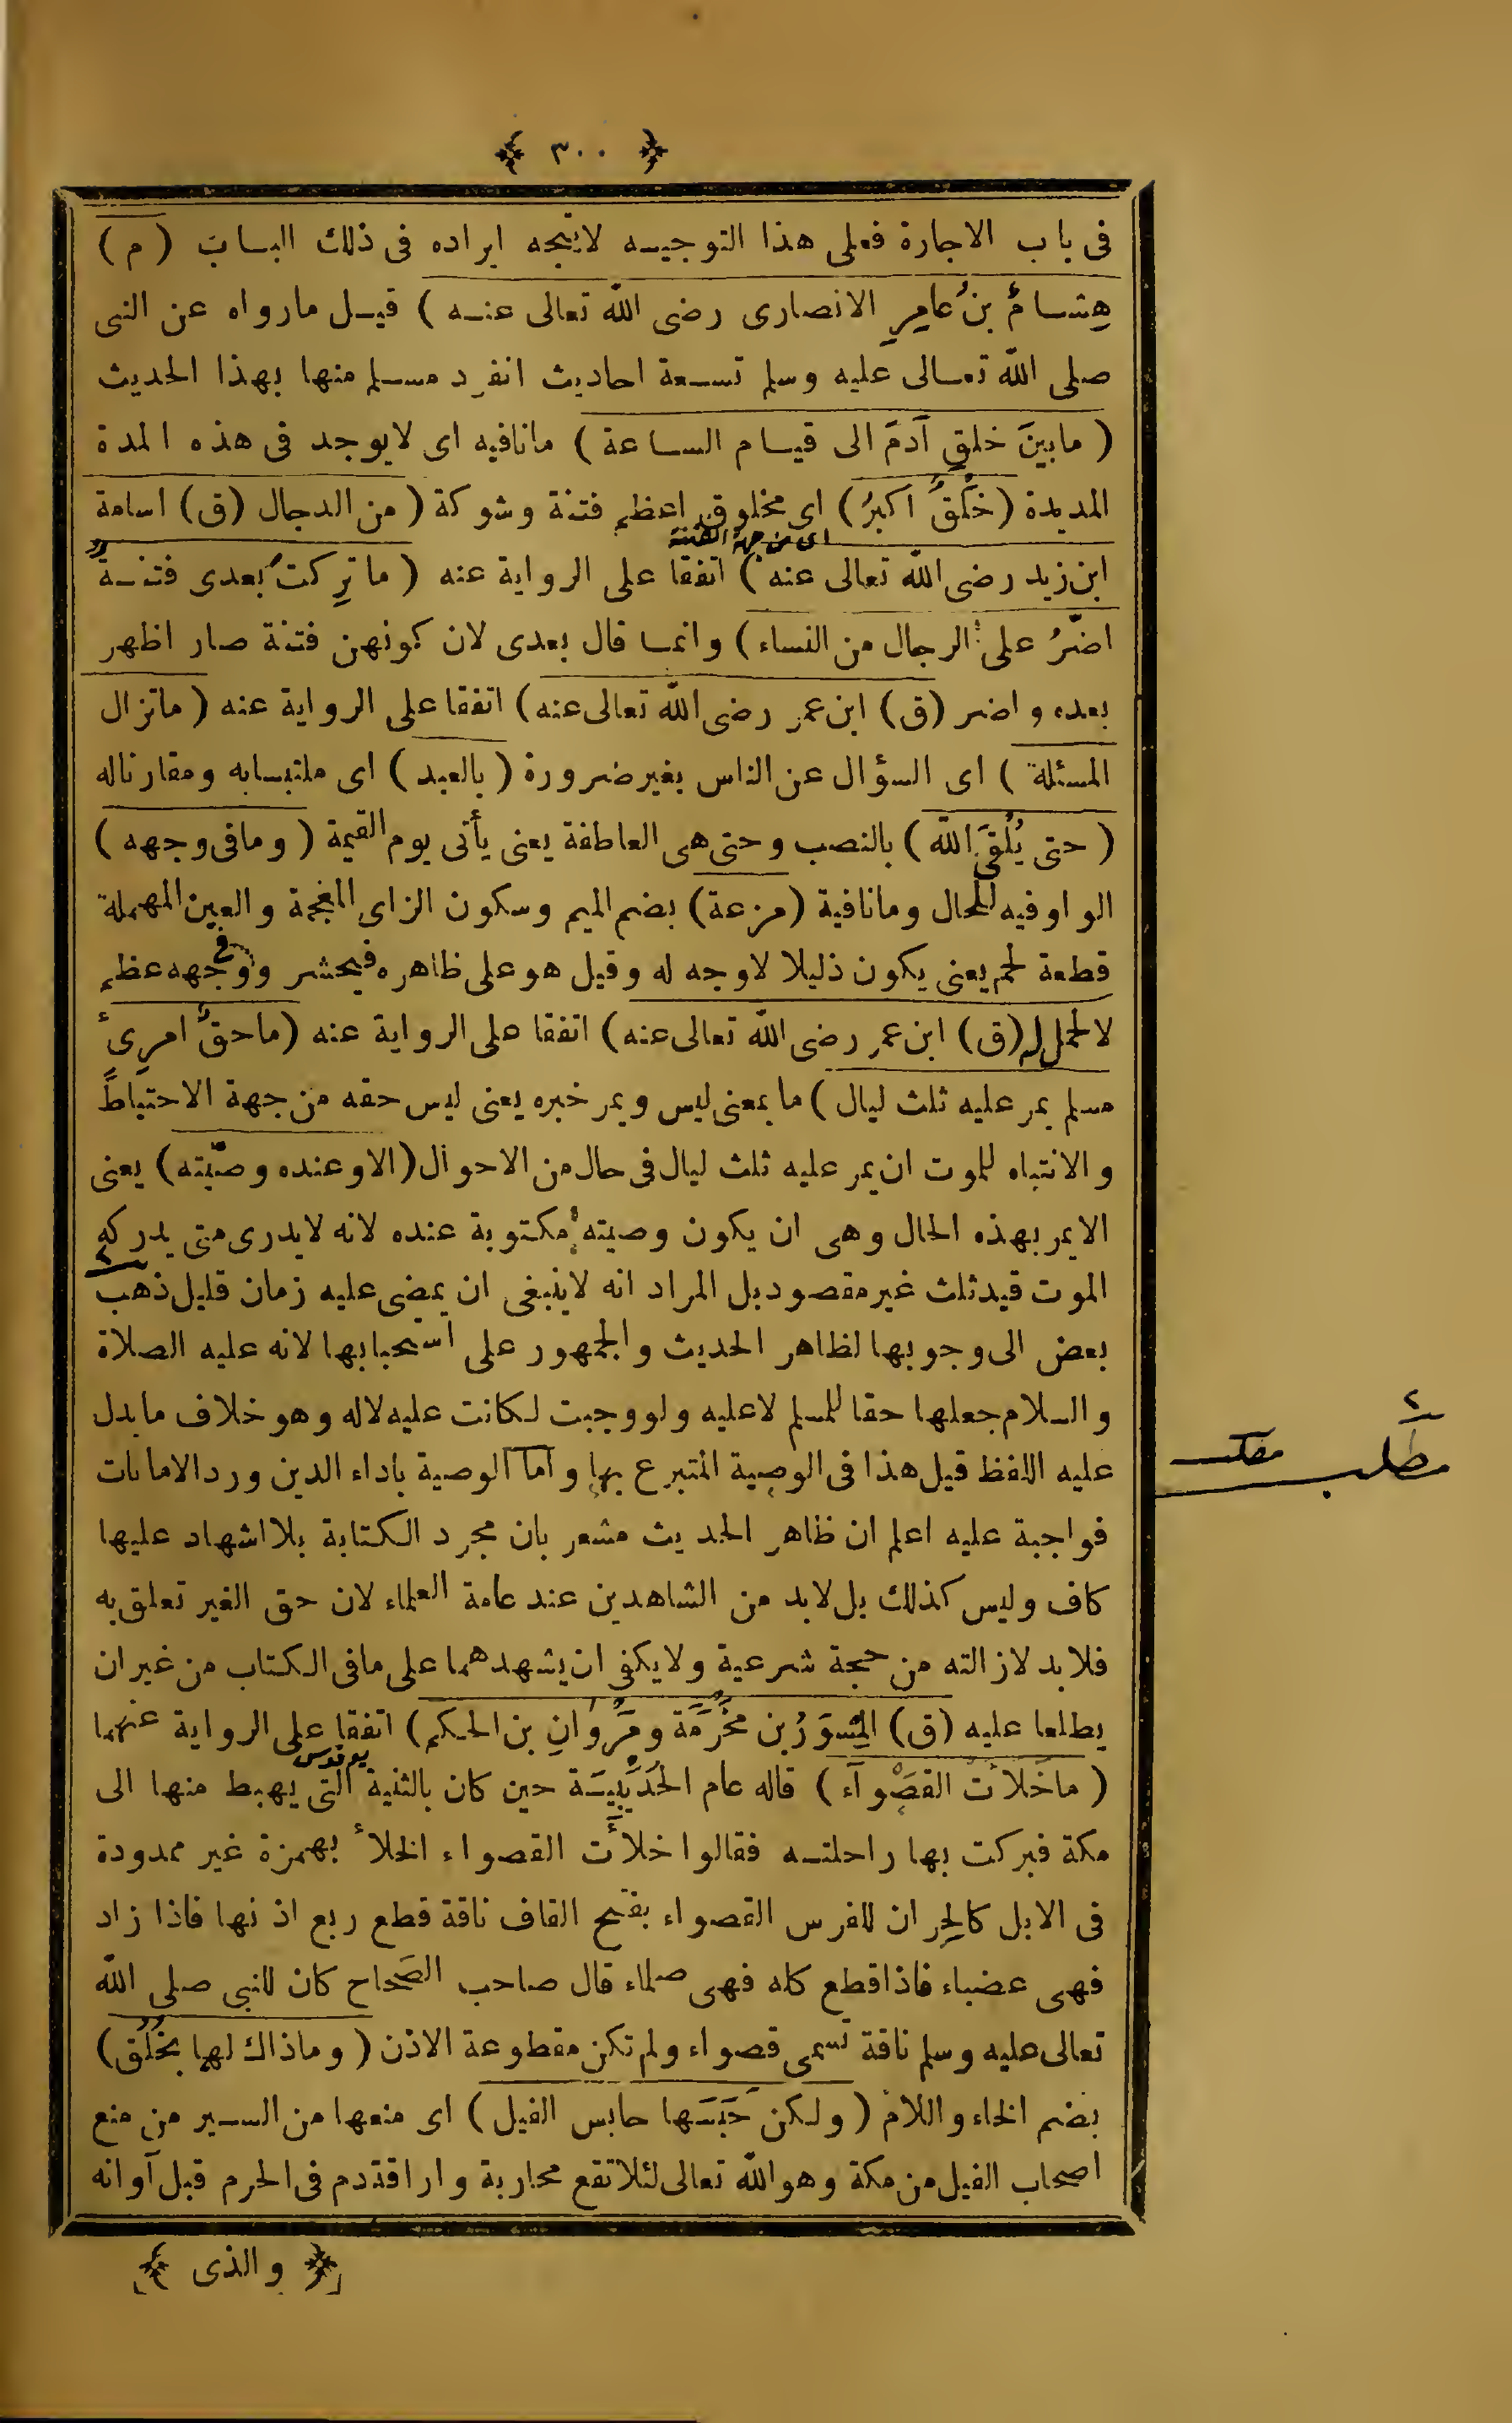 ﴿ ٣٠٠ ﴾
فى باب الاجارة فعلى هذا التوجيه لايتجه ايراده فى ذلك الباب (م)
هِشامُ بنُ عامِرٍ الانصارى رضى الله تعالى عنه) قيل مارواه عن النبى
صلى الله تعالى عليه وسلم تسعة احاديث انفرد مسلم منها بهذا الحديث
(مابينَ خلقِ آدمَ الى قيام الساعة) مانافيه اى لايوجد فى هذه المدة
المديدة (خَلْقٌ اكبرُ) اى مخلوق اعظم فتنة وشوكة (من الدجال (ق) اسامة
اى من جهة الفتنة
ابن زيد رضى الله تعالى عنه) اتفقا على الرواية عنه (ماتركتُ بعدى فتنةً
اضرَّ على الرجال من النساء) وانما قال بعدى لان كونهن فتنة صار اظهر
بعده واضر (ق) ابن عمر رضى الله تعالى عنه) اتفقا على الرواية عنه (ماتزال
المسئلة) اى السؤال عن الناس بغير ضرورة (بالعبد) اى ملتبسابه ومقارناله
(حتى يُلْقىَ الله) بالنصب وحتى هى العاطفة يعنى يأتى يوم القيمة (ومافى وجهه)
الواو فيه للحال ومانافية (مزعة) بضم الميم وسكون الزاى المعجمة والعين المهملة
قطعة لحم يعنى يكون ذليلا لاوجه له وقيل هو على ظاهره فيحشر ووجهه عظم
فى
لالحم له (ق) ابن عمر رضى الله تعالى عنه) اتفقا على الرواية عنه (ماحقُّ امرِىءٍ
مسلم يمر عليه ثلث ليال) ما بمعنى ليس ويمر خبره يعنى ليس حقه من جهة الاحتياط
والانتباه للموت ان يمر عليه ثلث ليال فى حال من الاحوال (الاوعنده وصيّته) يعنى
الايمر بهذه الحال وهى ان يكون وصيته مكتوبة عنده لانه لايدرى متى يدركه
الموت قيد ثلث غير مقصود بل المراد انه لاينبغى ان يمضى عليه زمان قليل ذهب
بعض الى وجوبها لظاهر الحديث والجمهور على استحبابها لانه عليه الصلاة
والسلام جعلها حقا للمسلم لاعليه ولو وجبت لكانت عليه لاله وهو خلاف مايدل
عليه اللفظ قيل هذا فى الوصية المتبرع بها واما الوصية باداء الدين ورد الامانات
فواجبة عليه اعلم ان ظاهر الحديث مشعر بان مجرد الكتابة بلا اشهاد عليها
كاف وليس كذلك بل لابد من الشاهدين عند عامة العلماء لان حق الغير تعلق به
فلابد لازالته من حجة شرعية ولايكفى ان يشهدهما على مافى الكتاب من غير ان
يطلعا عليه (ق) المِسْوَرُ بن مَخْرَمَة ومَرْوان بن الحكم) اتفقا على الرواية عنهما
(ماخلأتْ القصْواءُ) قاله عام الحُدَيْبِيَة حين كان بالثنية التى يهبط منها الى
مكة فبركت بها راحلته فقالوا خلأت القصواء الخلأ بهمزة غير ممدودة
فى الابل كالحران للفرس القصواء بفتح القاف ناقة قطع ربع اذنها فاذا زاد
فهى عضباء فاذا قطع كله فهى صلماء قال صاحب الصَحاح كان للنبى صلى الله
تعالى عليه وسلم ناقة تسمى قصواء ولم تكن مقطوعة الاذن (وماذاك لها بخُلُق)
بضم الخاء واللام (ولكن حَبَسَها حابس الفيل) اى منعها من السير من منع
اصحاب الفيل من مكة وهو الله تعالى لئلا تقع محاربة واراقة دم فى الحرم قبل آوانه
﴿ والذى ﴾
مطلب